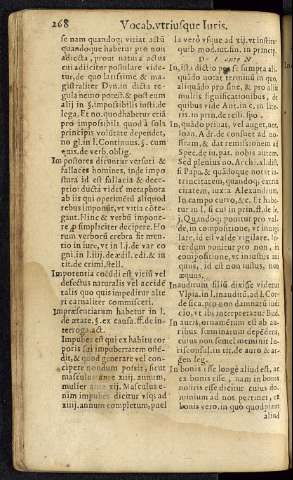 268 Vocab. vtriusque Iuris.
se nam quandoq; vitiat actũ
quandoque habetur pro non
adiecta, prout natura actus
cui adiicitur postulare vide-
tur. de quo latissime & ma-
gistraliter Dyn. in dicta re-
gula nemo potest. & post eum
alij in §. impossibilis insti. de
lega. Et no. quod habetur etiã
pro impossibili quod à sola
principis volũtate dependet,
no. gl. in l. Continuus. §. cum
quis. de verb. oblig.
Impostores dicuntur versuti &
fallaces homines, inde impo
stura id est fallacia & dece-
ptio: ducta videt' metaphora
ab iis qui
rebus imponũt, vt vitia cõte-
gant. Hinc & verbũ impone-
re pro simpliciter decipere. Ho
rum verborũ crebra fit men-
tio in iure, vt in l. j. de var co
gni. in l. iiij. de ædil. edi. & in
tit. de crimi. stell.
Impotentia coeũdi est vitiũ vel
defectus naturalis vel accidẽ
talis quo quis impeditur alte
ri carnaliter commisceri.
Impræsentiarum habetur in l.
de ætate. §. ex causa. ff. de in-
terrogat. act.
Impubes est qui ex habitu cor
poris sui impubertatem oste-
dit, & quod generare vel con-
cipere nondum possit, sicut
masculus ante xiiij. annum,
mulier ante xij. Masculus e-
nim impubes dicitur vsq; ad
xiiij. annum completum, puel
la verò vsque ad xij. vt instit.
quib. mod. tut. fin. in princip.
I ante N
In, ista dictio
quãdo notat terminũ in quo,
aliquãdo pro sine, & pro aliis
multis significationibus, de
quibus vide Ant. in c. in lite-
ris. in prin. de resti. spo.
In, quãdo priuat, vel auget, not.
Ioan. A. dr. de consue. ad no-
stram, & dat remissionem ad
Spec. de in. pat. nobis autem.
Sed plenius no. Archi. al. dist.
si Papa. & quãdoque notat in-
trinicitatem, quandoq; extra
citatem, iuxta Alexandrum,
In campo curro, &c. Et habe-
tur in l. si cui in prin. ff. de le.
j. Quandoq; ponitur pro val-
de, in compositione, vt inuigi
lare, id est valde vigilare. In-
terdum ponitur pro non, in
compositione, vt in iustus ini
quus, id est non iustus, non
æquus.
Inauditum filiũ dixisse videtur
Vlpia. in l. inauditũ, ad l. Cor.
de sica. pro non damnato iudi
cio, vt ibi interpretatur Bud.
In auris, ornamentum est ab au-
ribus fœminarum depẽdens,
cuius non semel meminit Iu-
risconsul. in tit. de auro & ar-
gen. leg.
In bonis esse longè aliud est, at
ex bonis esse, nam in bonis
nostris esse dicitur cuius do-
minium ad nos pertinet, ex
bonis vero, in quo quod prius
aliud